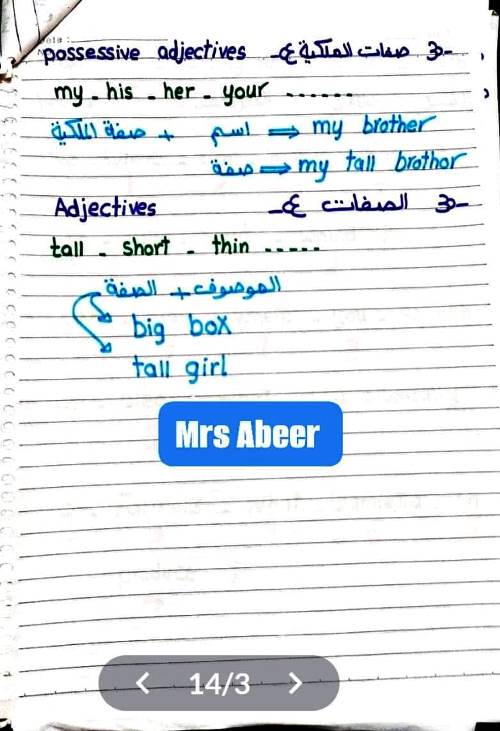 possessive adjectives صفات الملكية
my - his - her - your ......
صفة الملكية + اسم ⇒ my brother
صفة ⇒ my tall brothor
Adjectives الصفات
tall - short - thin .....
الصفة + الموصوف
big box
tall girl
Mrs Abeer
14/3